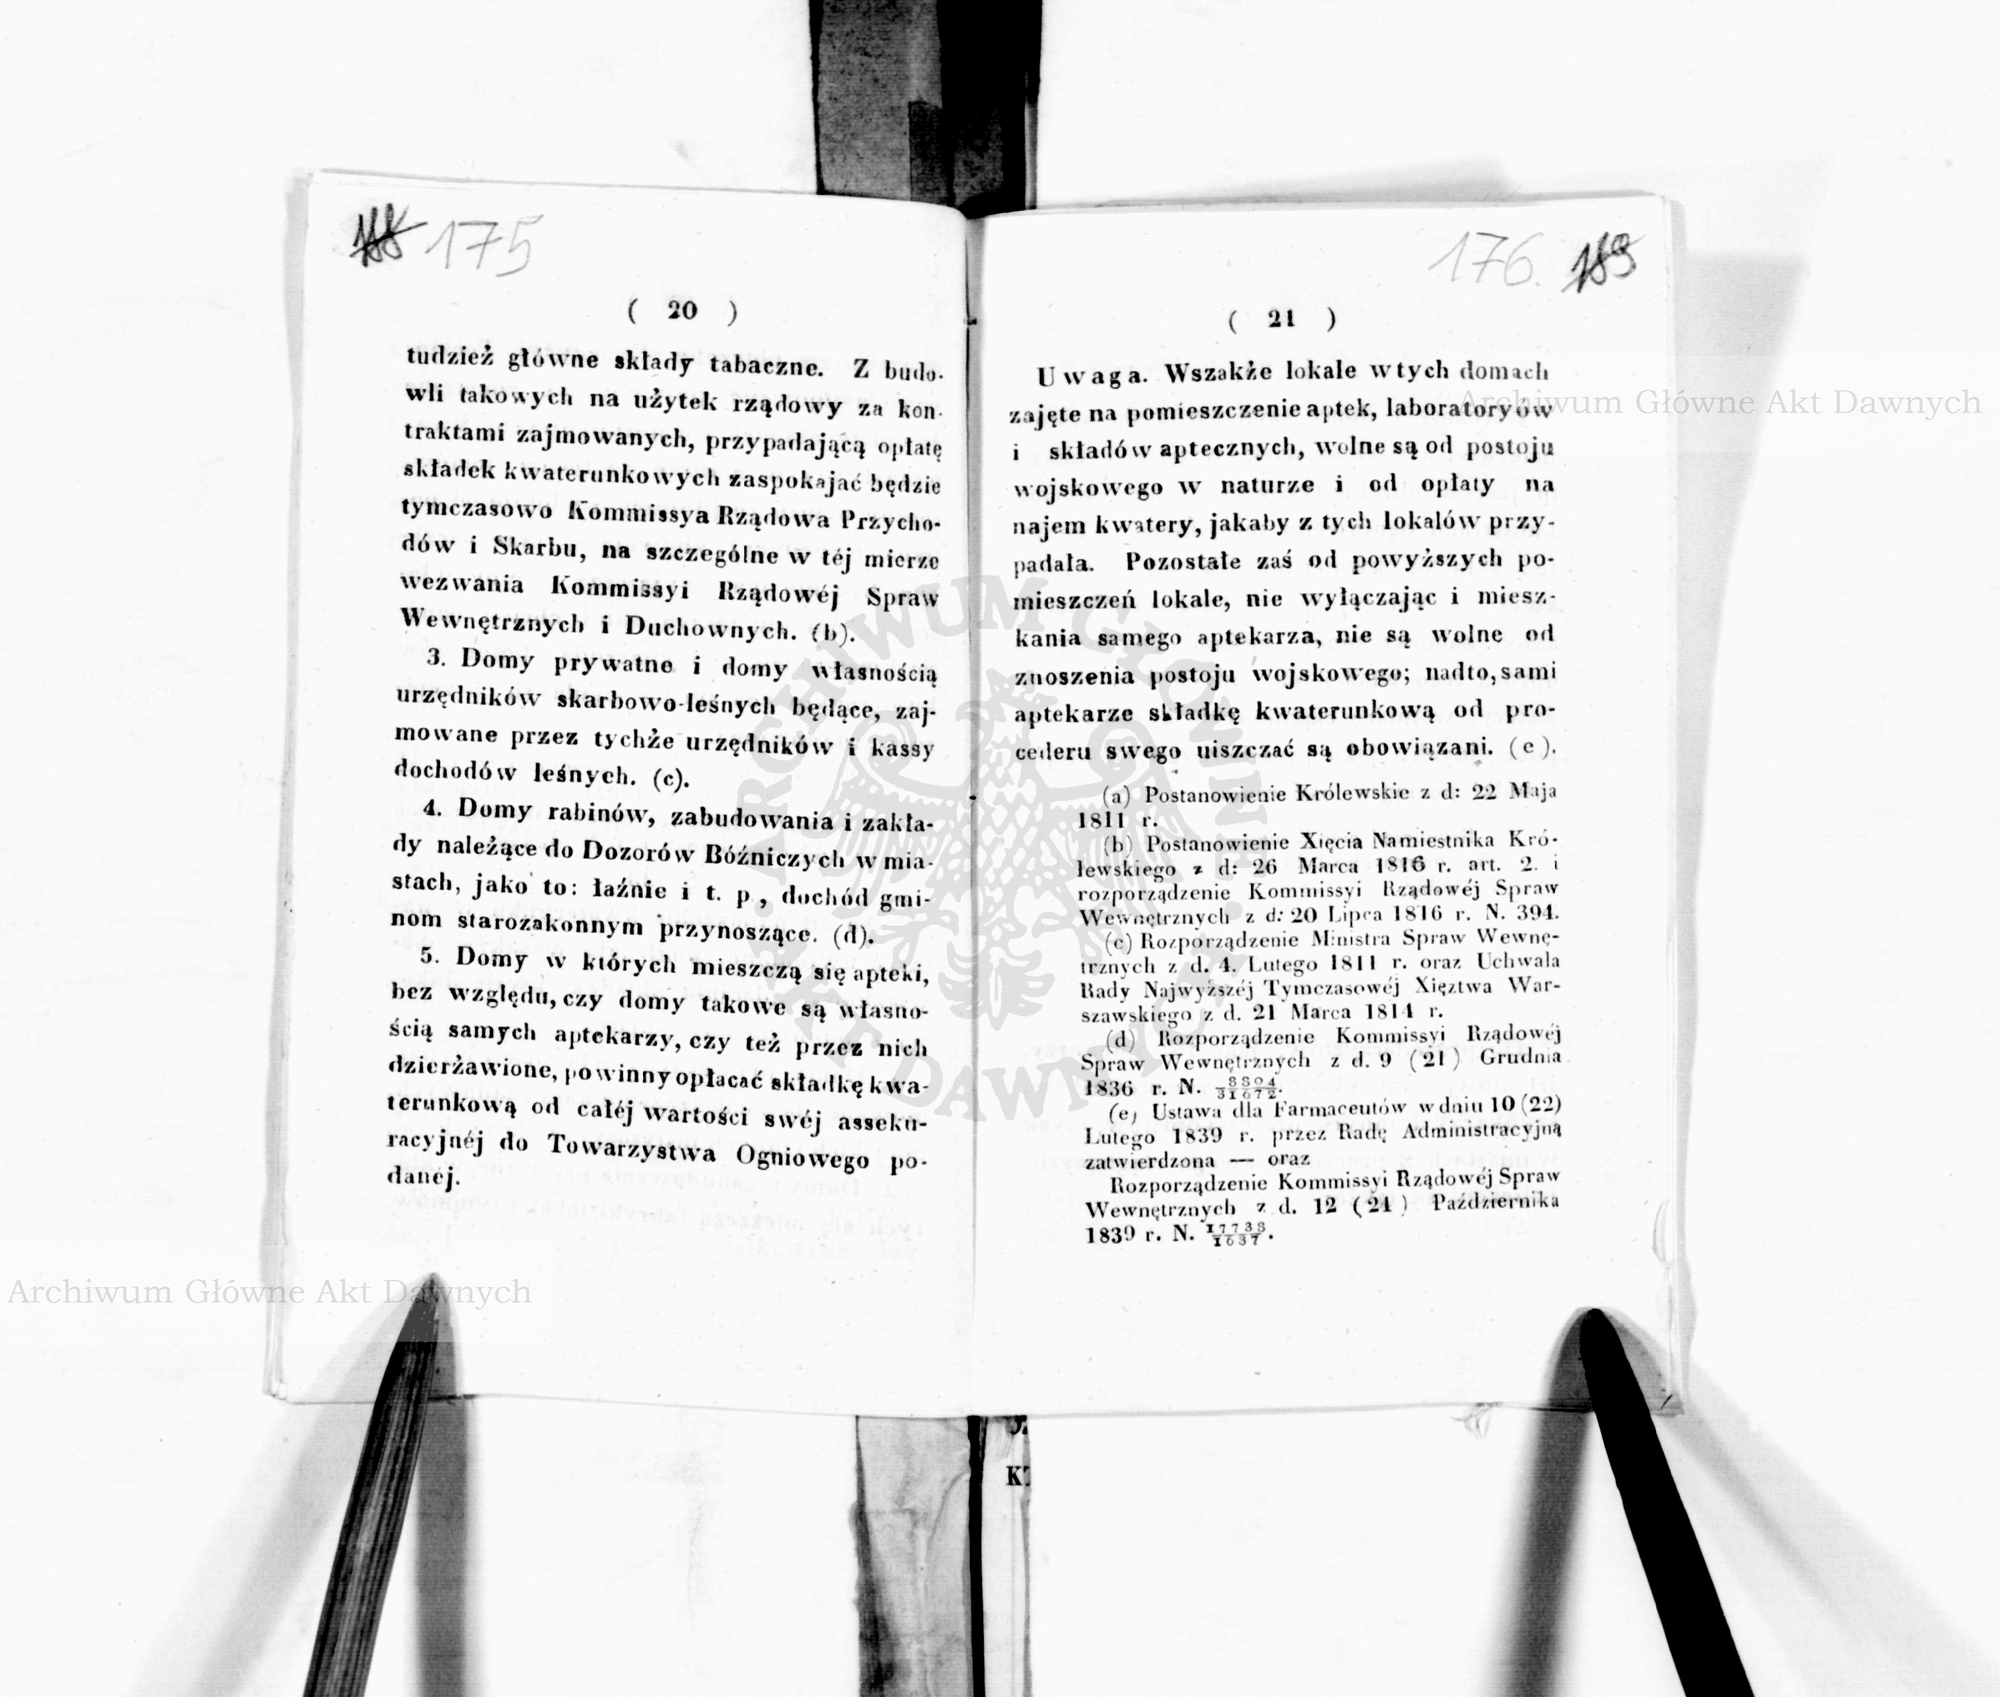 175
( 20 )
tudzież główne składy tabaczne. Z budo-
wli takowych na użytek rządowy za kon-
traktami zajmowanych, przypadającą opłatę
składek kwaterunkowych zaspokajać będzie
tymczasowo Kommissya Rządowa Przycho-
dów i Skarbu, na szczególne w téj mierze
wezwania Kommissyi Rządowéj Spraw
Wewnętrznych i Duchownych. (b).
3. Domy prywatne i domy własnością
urzędników skarbowo-leśnych będące, zaj-
mowane przez tychże urzędników i kassy
dochodów leśnych. (c).
4. Domy rabinów, zabudowania i zakła-
dy należące do Dozorów Bóźniczych w mia-
stach, jako to: łaźnie i t. p, dochód gmi-
nom starozakonnym przynoszące. (d).
5. Domy w których mieszczą się apteki,
bez względu, czy domy takowe są własno-
ścią samych aptekarzy, czy też przez nich
dzierżawione, powinny opłacać składkę kwa-
terunkową od całéj wartości swéj asseku-
racyjnéj do Towarzystwa Ogniowego po-
danéj.
176. 189
( 21 )
Uwaga. Wszakże lokale w tych domach
zajęte na pomieszczenie aptek, laboratoryów
i składów aptecznych, wolne są od postoju
wojskowego w naturze i od opłaty na
najem kwatery, jakaby z tych lokalów przy-
padała. Pozostałe zaś od powyższych po-
mieszczeń lokale, nie wyłączając i miesz-
kania samego aptekarza, nie są wolne od
znoszenia postoju wojskowego; nadto, sami
aptekarze składkę kwaterunkową od pro-
cederu swego uiszczać są obowiązani. (e).
(a) Postanowienie Królewskie z d: 22 Maja
1811 r.
(b) Postanowienie Xięcia Namiestnika Kró-
lewskiego z d: 26 Marca 1816 r. art. 2. i
rozporządzenie Kommissyi Rządowéj Spraw
Wewnętrznych z d: 20 Lipca 1816 r. N. 394.
(c) Rozporządzenie Ministra Spraw Wewnę-
trznych z d. 4. Lutego 1811 r. oraz Uchwała
Rady Najwyższéj Tymczasowéj Xięztwa War-
szawskiego z d. 21 Marca 1814 r.
(d) Rozporządzenie Kommissyi Rządowéj
Spraw Wewnętrznych z d. 9 (21) Grudnia
1836 r. N.
(e) Ustawa dla Farmaceutów w dniu 10 (22)
Lutego 1839 r. przez Radę Administracyjną
zatwierdzona — oraz
Rozporządzenie Kommissyi Rządowéj Spraw
Wewnętrznych z d. 12 (24) Października
1839 r. N. 17733/1637.
Archiwum Główne Akt Dawnych
Archiwum Główne Akt Dawnych
ARCHIWUM GŁÓWNE AKT DAWNYCH